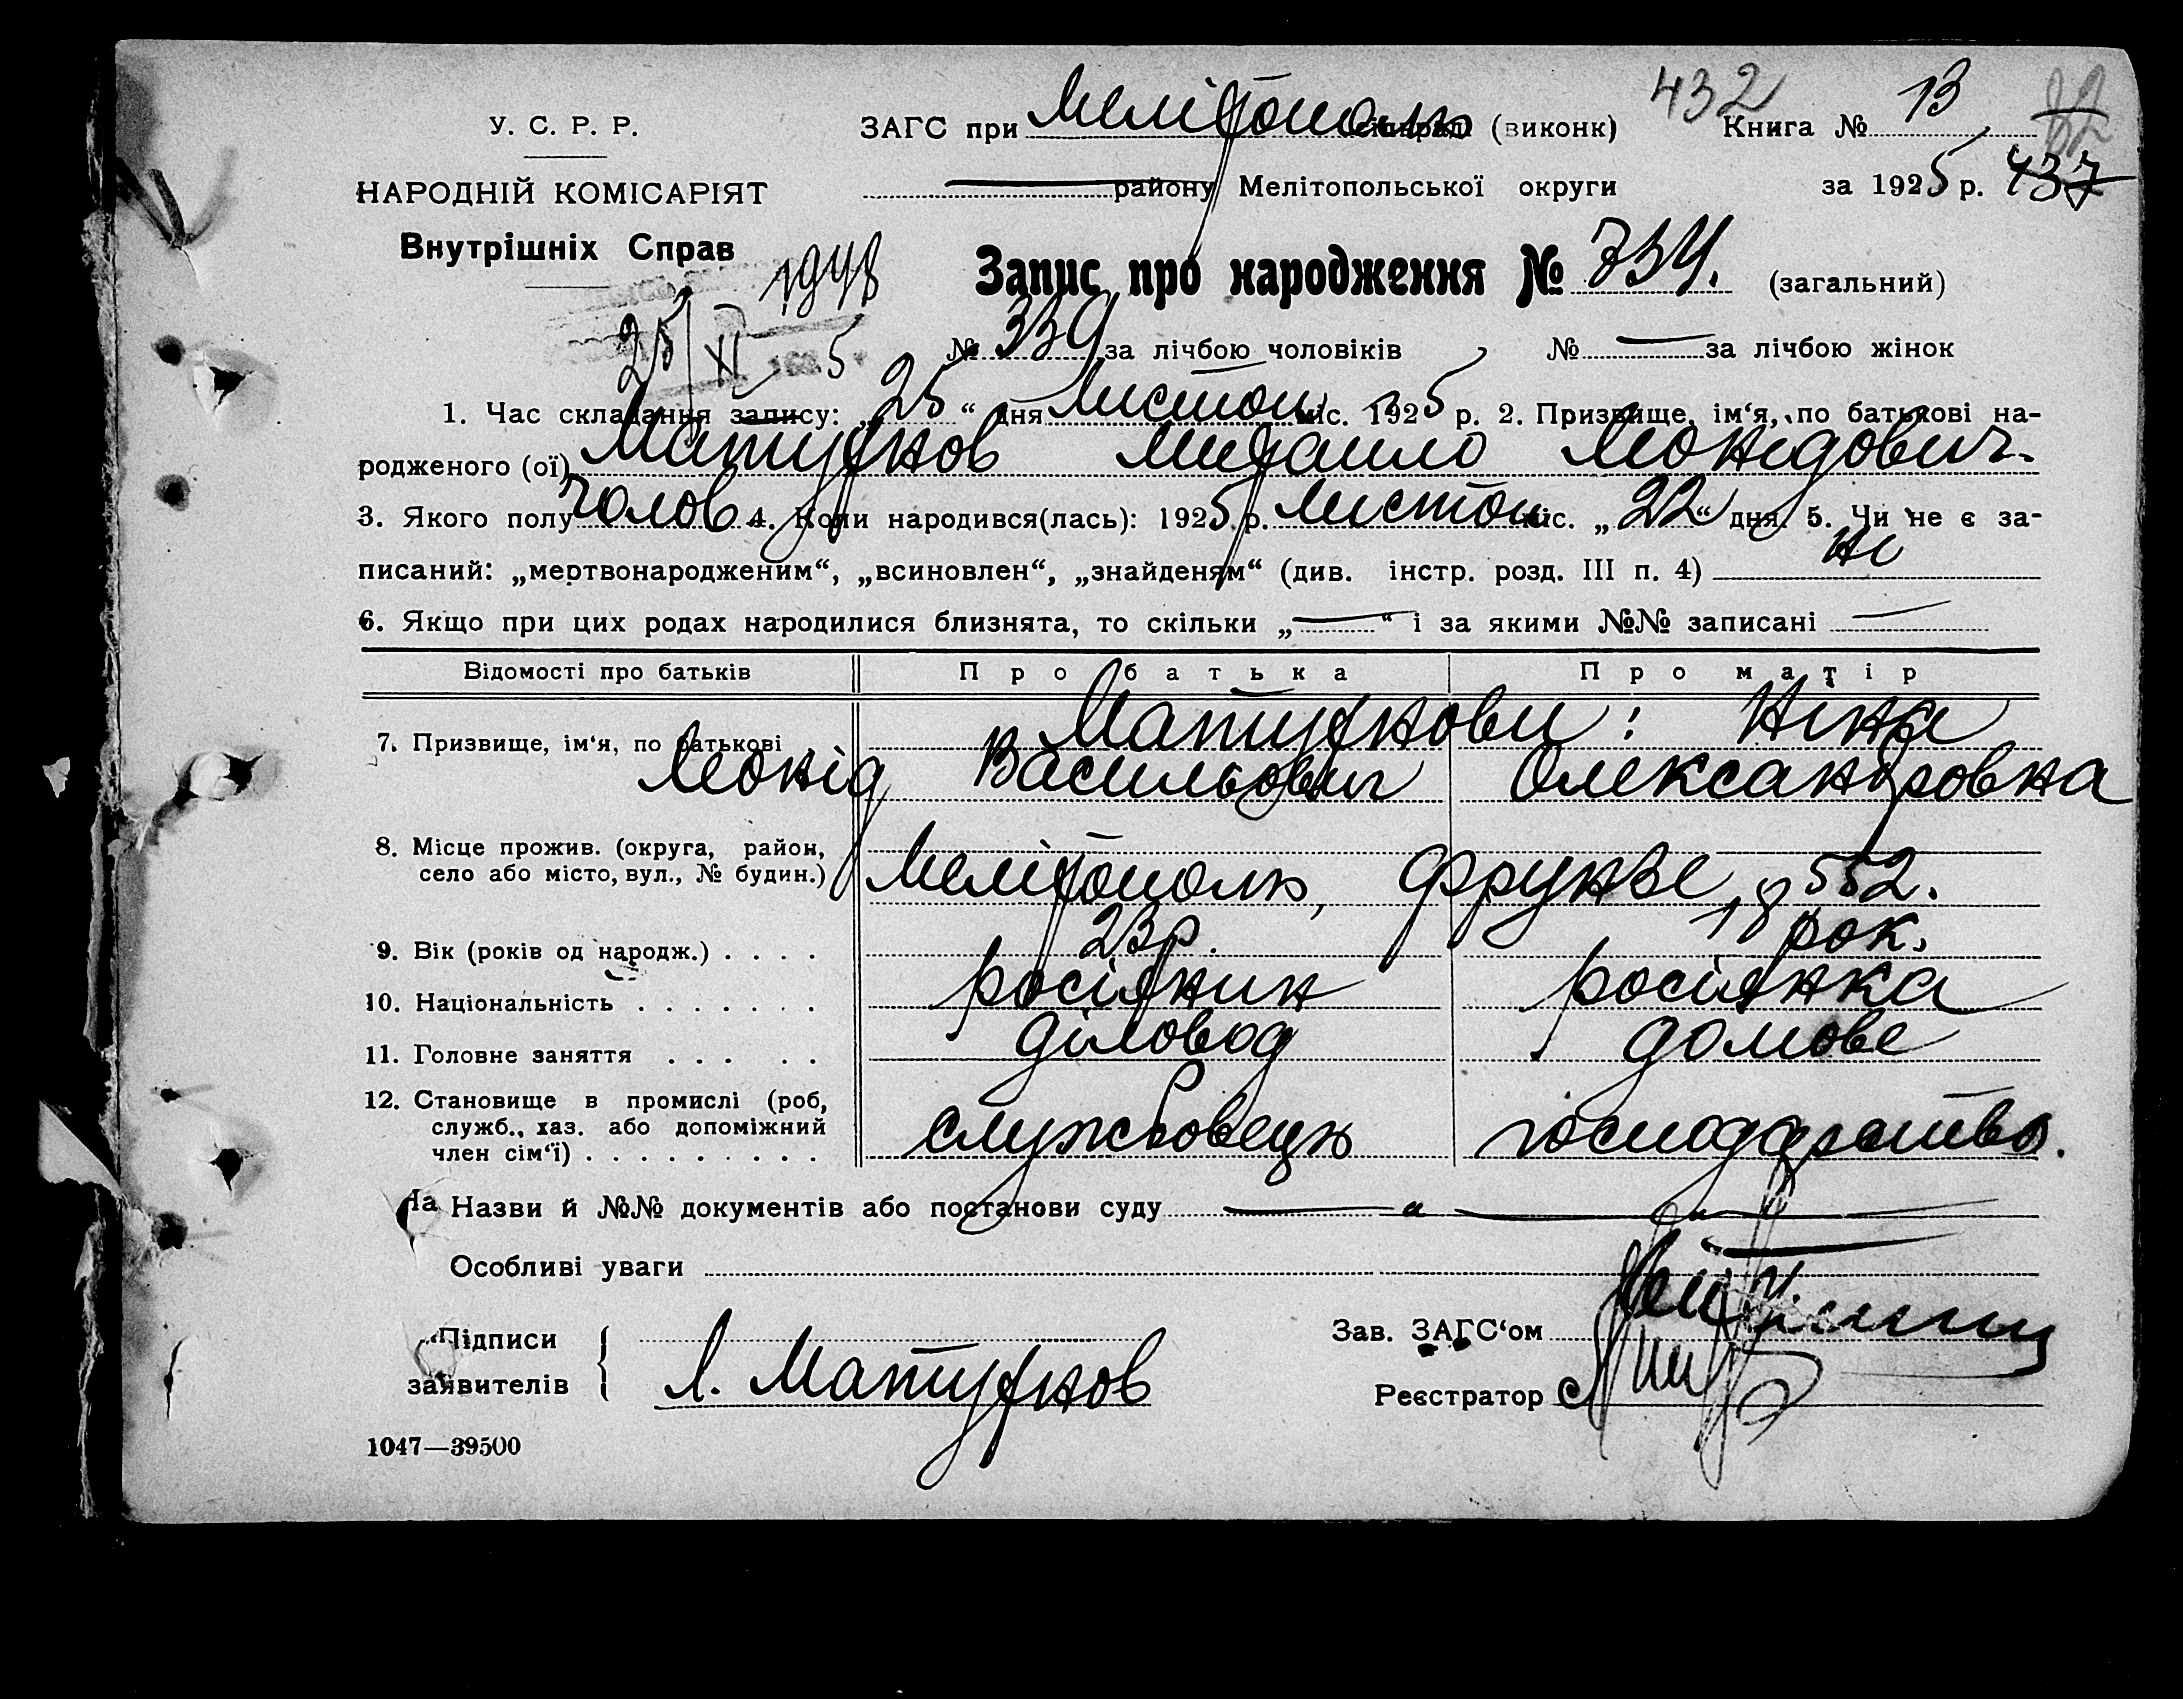 432
У. С. Р. Р. ЗАГС при Мелітополь сільраді (виконк) Книга № 13
НАРОДНІЙ КОМІСАРІЯТ району Мелітопольської округи за 1925 р. 437
Внутрішніх Справ
1948
Запис про народження № 734. (загальний)
25/XI 1925
№ 339 за лічбою чоловіків № — за лічбою жінок
1. Час складання запису: „25“ дня Листоп міс. 1925 р. 2. Призвище, ім‘я, по батькові на-
родженого (ої) Матузков Михайло Леонідович.
3. Якого полу чолов 4. Коли народився(лась): 1925 р. Листоп міс. „22“ дня. 5. Чи не є за-
писаний: „мертвонародженим“, „всиновлен“, „знайденям“ (див. інстр. розд. III п. 4) ні
6. Якщо при цих родах народилися близнята, то скільки „—“ і за якими №№ записані —
Відомості про батьків Про батька Про матір
7. Призвище, ім‘я, по батькові Матузкови: Ніна
Леонід Васильович Олександровна
8. Місце прожив. (округа, район,
село або місто, вул., № будин.) Мелітополь, Фрунзе, 552.
9. Вік (років од народж.) . . . . 23 р. 18 рок.
10. Національність . . . . . . . росіянин росіянка
11. Головне заняття . . . . . діловод домове
12. Становище в промислі (роб,
служб., хаз. або допоміжний
член сім‘ї) . . . . . . . . . службовець господарство.
На Назви й №№ документів або постанови суду — „ —
Особливі уваги
Підписи
заявителів Л. Матузков
Зав. ЗАГС‘ом
Реєстратор
1047—39500